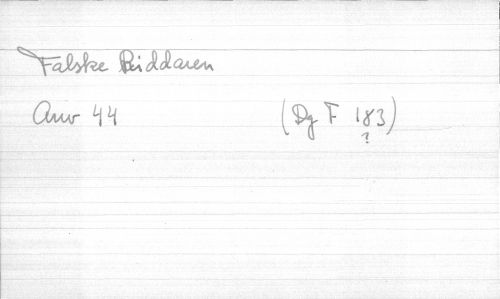 Falske Riddaren
Arw 44 (Dg F 183)
?